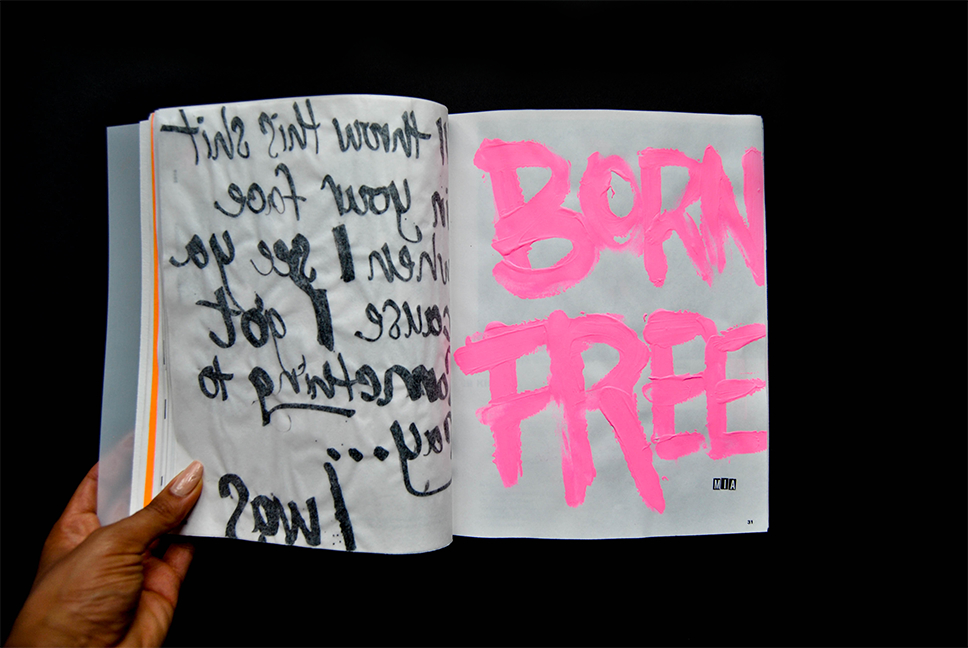 ll throw this shit
in your face
when I see ya
cause I got
something to
say...
I was
BORN
FREE
MIA
31